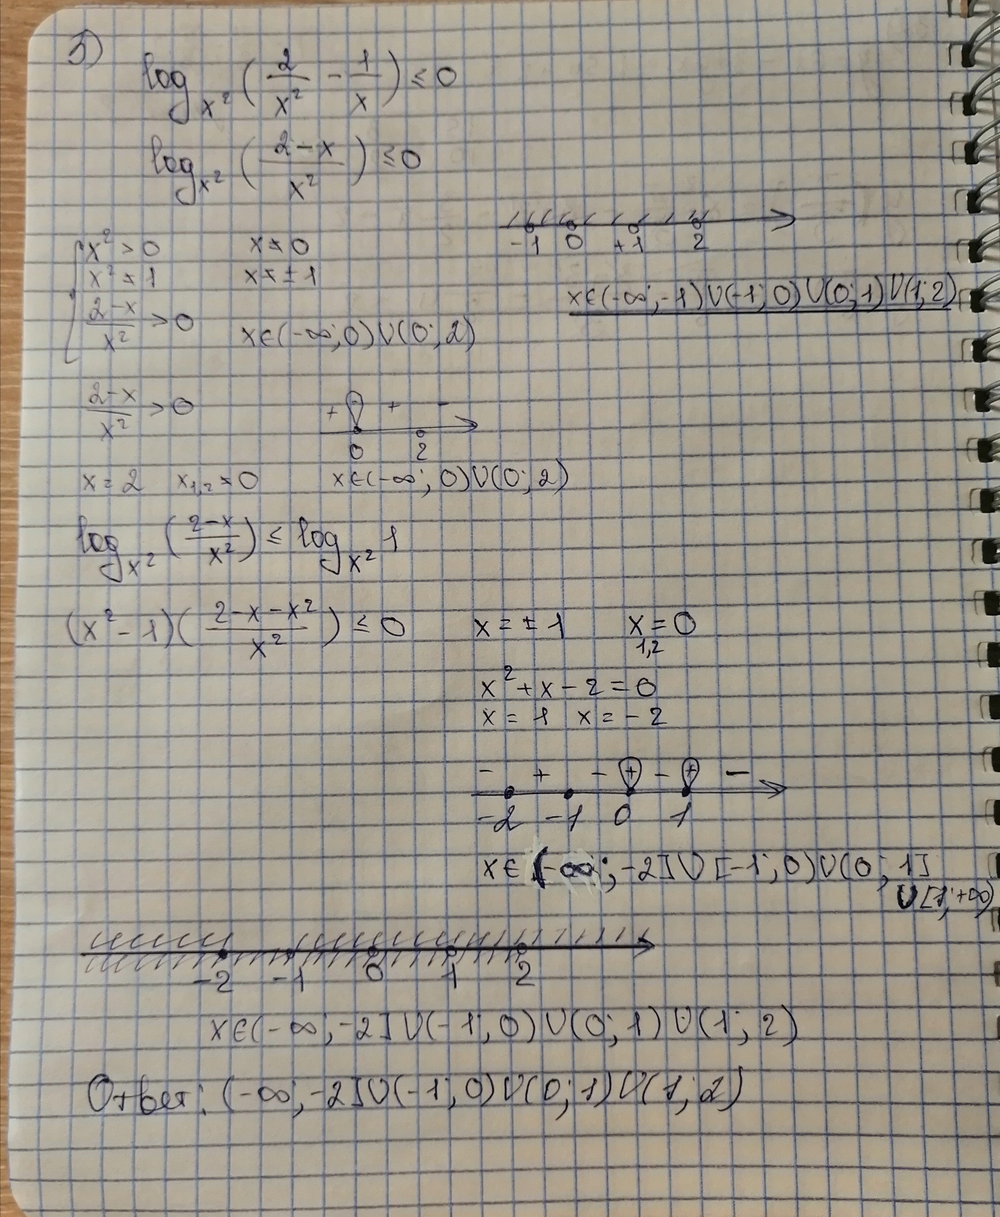 3)
log_{x²}(2/x² - 1/x) ≤ 0
log_{x²}((2-x)/x²) ≤ 0
-1 0 +1 2
x² > 0 x ≠ 0
x² ≠ 1 x ≠ ±1
x∈(-∞; -1)U(-1; 0)U(0; 1)U(1; 2)
(2-x)/x² > 0 x∈(-∞; 0)U(0; 2)
(2-x)/x² > 0 + - + -
0 2
x = 2 x_{1,2} ≠ 0 x∈(-∞; 0)U(0; 2)
log_{x²}((2-x)/x²) ≤ log_{x²} 1
(x² - 1)((2-x-x²)/x²) ≤ 0 x = ±1 x_{1,2} = 0
x² + x - 2 = 0
x = 1 x = -2
- + - + - + -
-2 -1 0 1
x∈(-∞; -2]U[-1; 0)U(0; 1]
U[1; +∞)
-2 -1 0 1 2
x∈(-∞; -2]U(-1; 0)U(0; 1)U(1; 2)
Ответ: (-∞; -2]U(-1; 0)U(0; 1)U(1; 2)